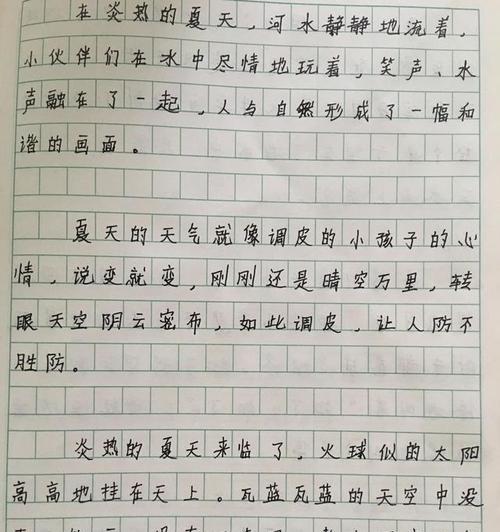 在炎热的夏天，河水静静地流着，
小伙伴们在水中尽情地玩着，笑声、水
声融在了一起，人与自然形成了一幅和
谐的画面。
夏天的天气就像调皮的小孩子的心
情，说变就变，刚刚还是晴空万里，转
眼天空阴云密布，如此调皮，让人防不
胜防。
炎热的夏天来临了，火球似的太阳
高高地挂在天上。瓦蓝瓦蓝的天空中没